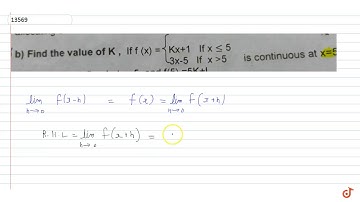 13569
b) Find the value of K , If f (x) = { Kx+1 If x ≤ 5
3x-5 If x >5 is continual at x=5
lim h→0 f(x-h) = f(x) = lim h→0 f(x+h)
R.H.L = lim h→0 f(x+h) =